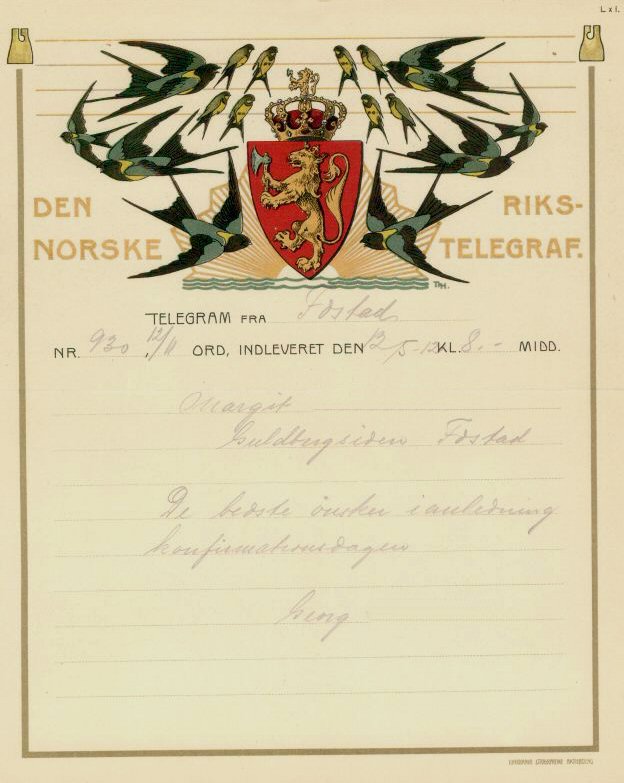 L x 1.
DEN NORSKE RIKS-TELEGRAF.
TH.
TELEGRAM FRA Fosstad
NR. 930, 12/11 ORD, INDLEVERET DEN 12/5-12 KL. 8.- MIDD.
Margit
Guldbergsiden
De bedste ønsker i anledning
konfirmationsdagen
Georg